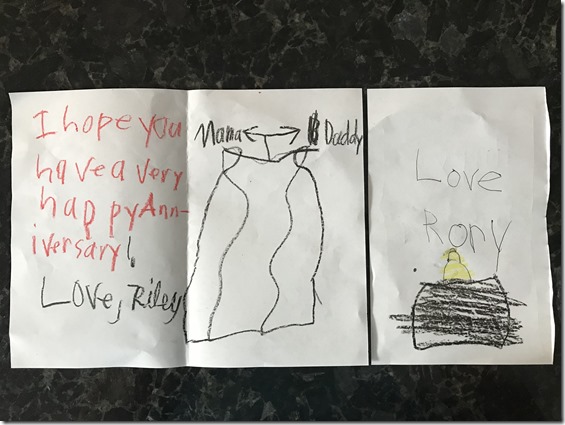 I hope you
have a very
happy Ann-
iversary!
Love, Riley
Mama Daddy
Love
Rory